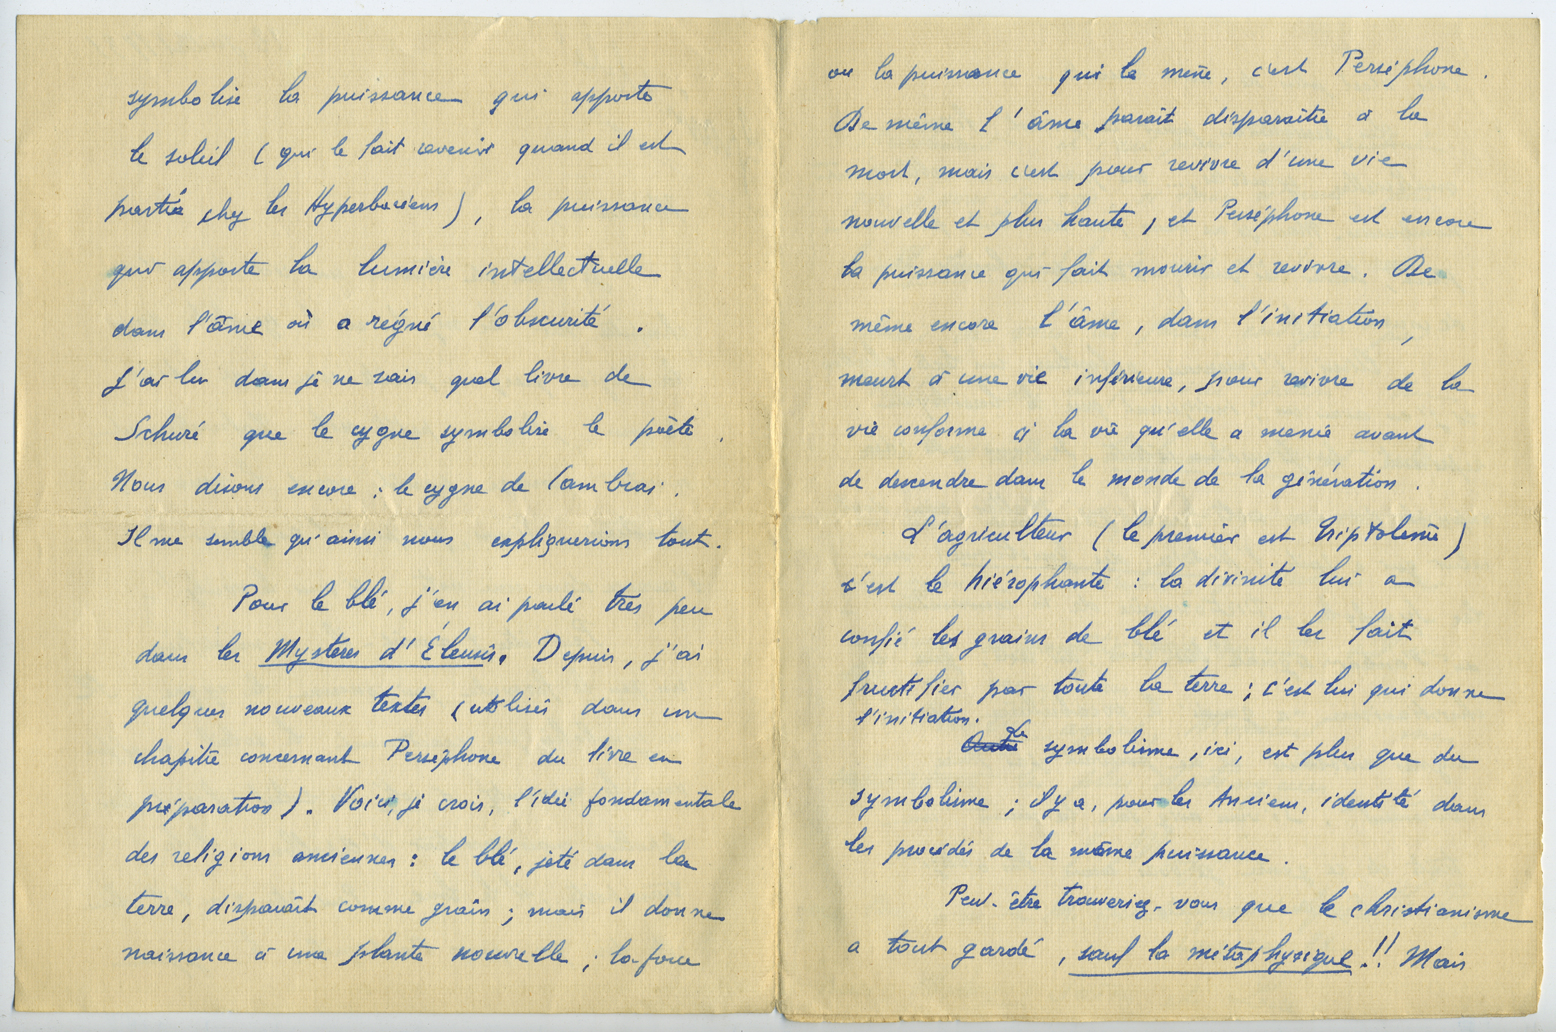 symbolise la puissance qui apporte
le soleil (qui le fait revenir quand il est
partie chez les Hyperboréens), la puissance
qui apporte la lumière intellectuelle
dans l'âme où a régné l'obscurité.
J'ai lu dans je ne sais quel livre de
Schuré que le cygne symbolise le poète.
Nous disons encore : le cygne de Cambrai.
Il me semble qu'ainsi nous expliquerions tout.
Pour le blé, j'en ai parlé très peu
dans les Mystères d'Éleusis. Depuis, j'ai
quelques nouveaux textes (utilisés dans un
chapitre concernant Perséphone du livre en
préparation). Voici, je crois, l'idée fondamentale
des religions anciennes : le blé, jeté dans la
terre, disparaît comme grain ; mais il donne
naissance à une plante nouvelle ; la force
ou la puissance qui la mène, c'est Perséphone.
De même l'âme paraît disparaître à la
mort, mais c'est pour revivre d'une vie
nouvelle et plus haute, et Perséphone est encore
la puissance qui fait mourir et revivre. De
même encore l'âme, dans l'initiation,
meurt à une vie inférieure, pour revivre de la
vie conforme à la vie qu'elle a menée avant
de descendre dans le monde de la génération.
L'agriculteur (le premier est Triptolème)
c'est le hiérophante : la divinité lui a
confié les grains de blé et il les fait
fructifier par toute la terre ; c'est lui qui donne
l'initiation.
Le symbolisme, ici, est plus que du
symbolisme ; il y a, pour les Anciens, identité dans
les procédés de la même puissance.
Peut-être trouveriez-vous que le christianisme
a tout gardé, sauf la métaphysique !! Mais